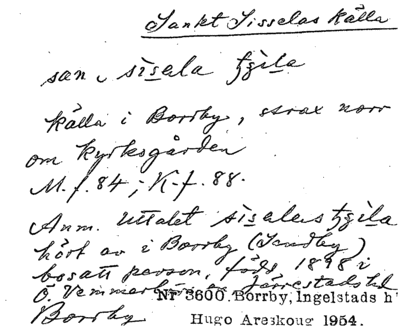 Sankt Sisselas källa
san, sisəla tʒɛla
källa i Borrby, strax norr
om kyrkogården
M. f. 84; K. f. 88.
Anm. Uttalet sisəlas tʒɛla
hört av i Borrby (Sandby)
bosatt person, född 1898 i
Ö. Vemmerlöv Järrestads hd
Nr 3600. Borrby, Ingelstads h
Borrby Hugo Areskoug 1954.